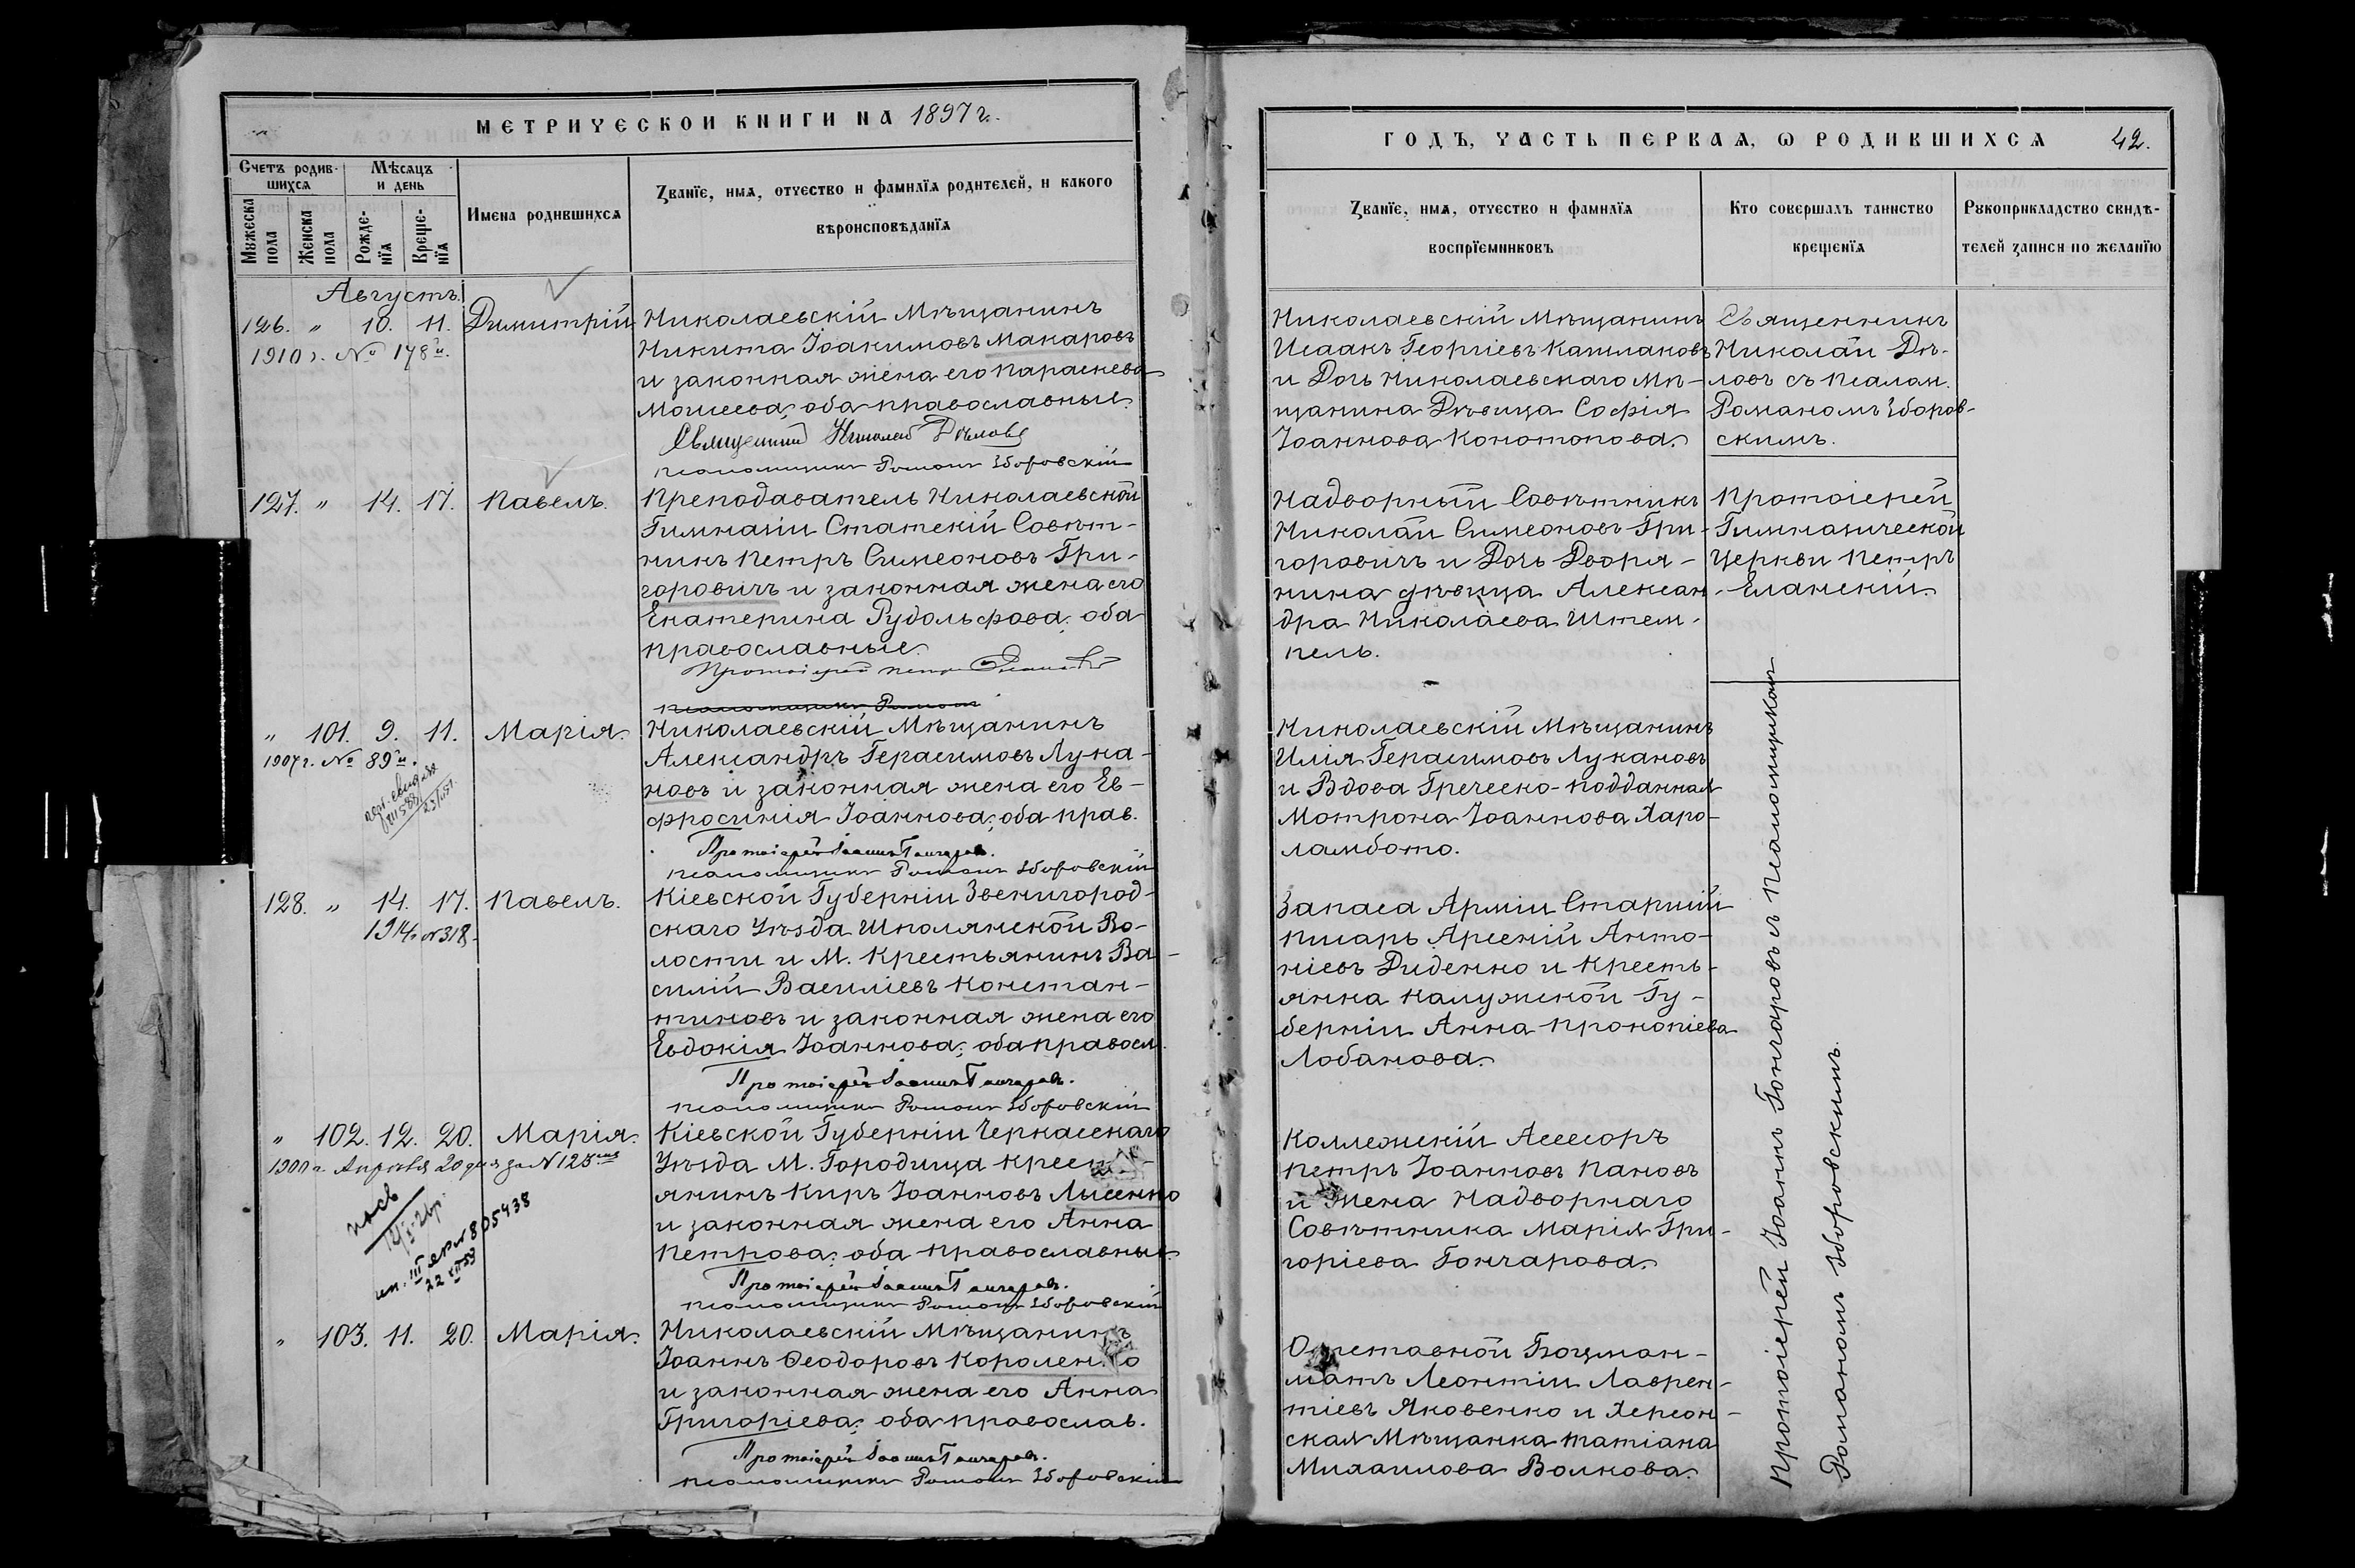 МЕТРИЧЕСКОЙ КНИГИ НА 1897 г.
Счетъ родив-
шихся
Мѣсяцъ
и день
Мужеска
пола
Женска
пола
Рожде-
нїя
Креще-
нїя
Имена родившихся
Званїе, имя, отчество и фамилїя родителей, и какого
вѣроисповѣданїя
Августъ.
126. " 10. 11. Димитрій
1910 г. № 178й.
Николаевскій Мѣщанинъ
Никита Іоакимовъ Макаровъ
и законная жена его Параскева
Моисеева, оба православные.
Священникъ Николай Дѣловъ
псаломщикъ Романъ Зборовскій
127. " 14. 17. Павелъ.
Преподаватель Николаевской
Гимназіи Статскій Совѣт-
никъ Петръ Симеоновъ Гри-
горовичъ и законная жена его
Екатерина Рудольфова, оба
православные.
Протоіерей Петръ Еланскій
псаломщикъ Романъ
" 101. 9. 11. Марія.
1907 г. № 89й.
Николаевскій Мѣщанинъ
Александръ Герасимовъ Лука-
новъ и законная жена его Ев-
фросинія Іоаннова, оба прав.
Протоіерей Іоаннъ Гончаровъ.
псаломщикъ Романъ Зборовскій
128. " 14. 17. Павелъ.
1914 г. № 318.
Кіевской Губерніи Звенигород-
скаго Уѣзда Шполянской Во-
лости и М. Крестьянинъ Ва-
силій Василіевъ Констан-
тиновъ и законная жена его
Евдокія Іоаннова, оба правосл.
Протоіерей Іоаннъ Гончаровъ.
псаломщикъ Романъ Зборовскій
" 102. 12. 20. Марія.
20 дня за № 125
805438
22 XII 53
Кіевской Губерніи Черкасскаго
Уѣзда М. Городища Крест-
янинъ Киръ Іоанновъ Лысенко
и законная жена его Анна
Петрова, оба православные.
Протоіерей Іоаннъ Гончаровъ.
псаломщикъ Романъ Зборовскій
" 103. 11. 20. Марія.
Николаевскій Мѣщанинъ
Іоаннъ Ѳеодоровъ Короленко
и законная жена его Анна
Григоріева, оба православ.
Протоіерей Іоаннъ Гончаровъ.
псаломщикъ Романъ Зборовскій
ГОДЪ, ЧАСТЬ ПЕРВАЯ, Ѡ РОДИВШИХСЯ 42.
Званїе, имя, отчество и фамилїя
воспрїемниковъ
Кто совершалъ таинство
крещенїя
Рукоприкладство свидѣ-
телей записи по желанїю
Николаевскій Мѣщанинъ
Исаакъ Георгіевъ Кашлаковъ
и Дочь Николаевскаго Мѣ-
щанина Дѣвица Софія
Іоаннова Конотопова.
Священникъ
Николай Дѣ-
ловъ съ псалом.
Романомъ Зборов-
скимъ.
Надворный Совѣтникъ
Николай Симеоновъ Гри-
горовичъ и Дочь Дворя-
нина дѣвица Алексан-
дра Николаева Штем-
пель.
Протоіерей
Гимназической
Церкви Петръ
Еланскій.
Николаевскій Мѣщанинъ
Илія Герасимовъ Лукановъ
и Вдова Греческо-подданная
Мотрона Іоаннова Харо-
ламбото.
Запаса Арміи Старшій
Писарь Арсеній Анто-
ніевъ Диденко и Кресть-
янка Калужской Гу-
берніи Анна Прокопіева
Лобанова.
Коллежскій Ассесоръ
Петръ Іоанновъ Пановъ
и жена Надворнаго
Совѣтника Марія Гри-
горіева Гончарова.
Отставной Боцман-
матъ Леонтій Лаврен-
тіевъ Яковенко и Херсон-
ская Мѣщанка Татіана
Михаилова Волкова.
Протоіерей Іоаннъ Гончаровъ съ псаломщикомъ
Романомъ Зборовскимъ.